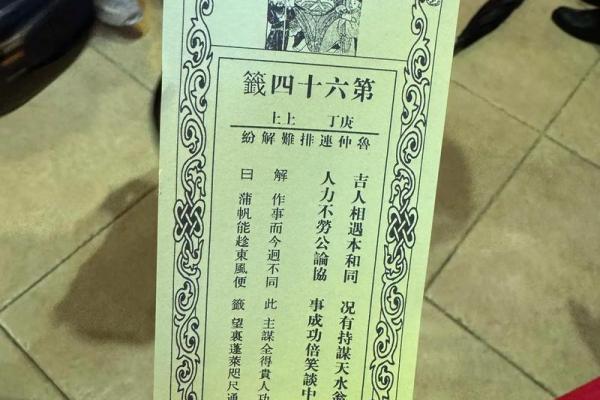 第六十四籤
庚丁 上上
魯仲連排難解紛
吉人相遇本和同 況有持謀天水翁
人力不勞公論協 事成功倍笑談中
解曰
作事而今迥不同 主謀全得貴人功
蒲帆能趁東風便 望裏蓬萊咫尺通
此籤